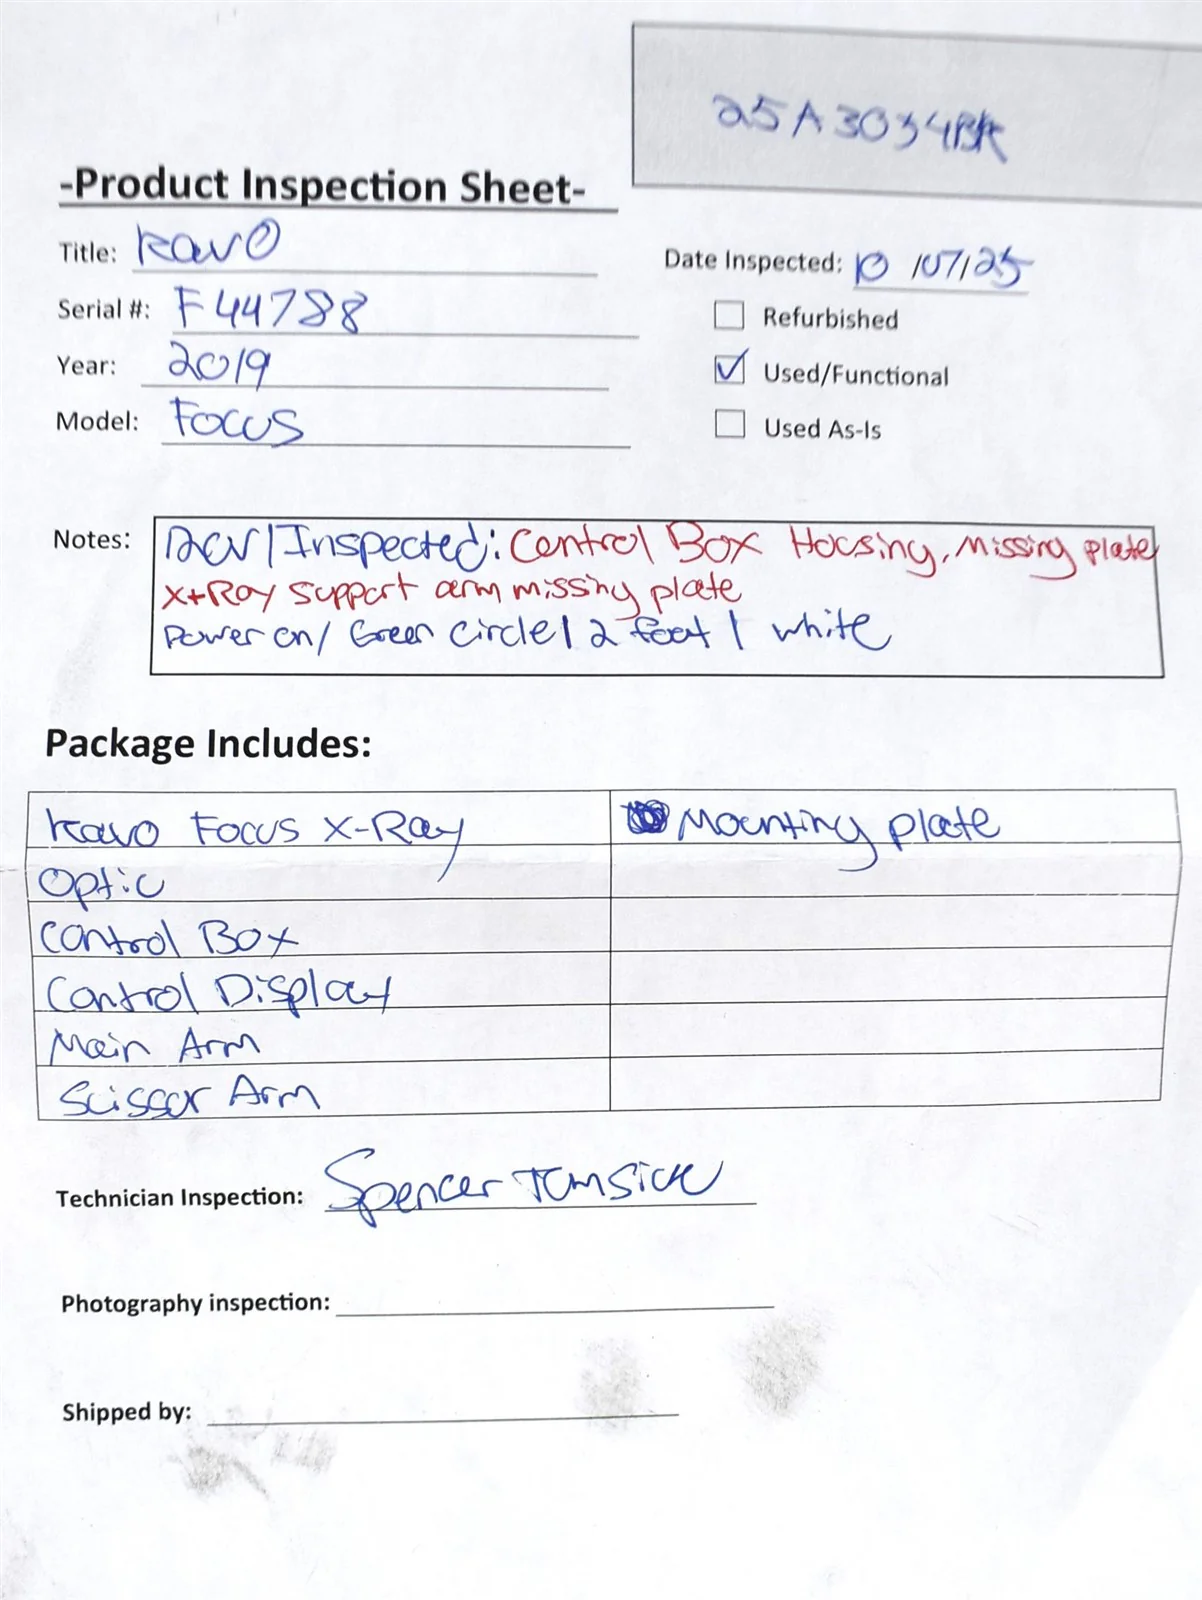 25A3034BR
-Product Inspection Sheet-
Title: Kavo
Date Inspected: 10/07/25
Serial #: F44788
Refurbished
Year: 2019
Used/Functional
Model: Focus
Used As-Is
Notes: Rcv/Inspected: Control Box Housing, Missing plate
X-Ray support arm missing plate
Power on/ Green circle | 2 foot | white
Package Includes:
Kavo Focus X-Ray
Mounting plate
Optic
Control Box
Control Display
Main Arm
Scissor Arm
Technician Inspection: Spencer
Photography inspection:
Shipped by: